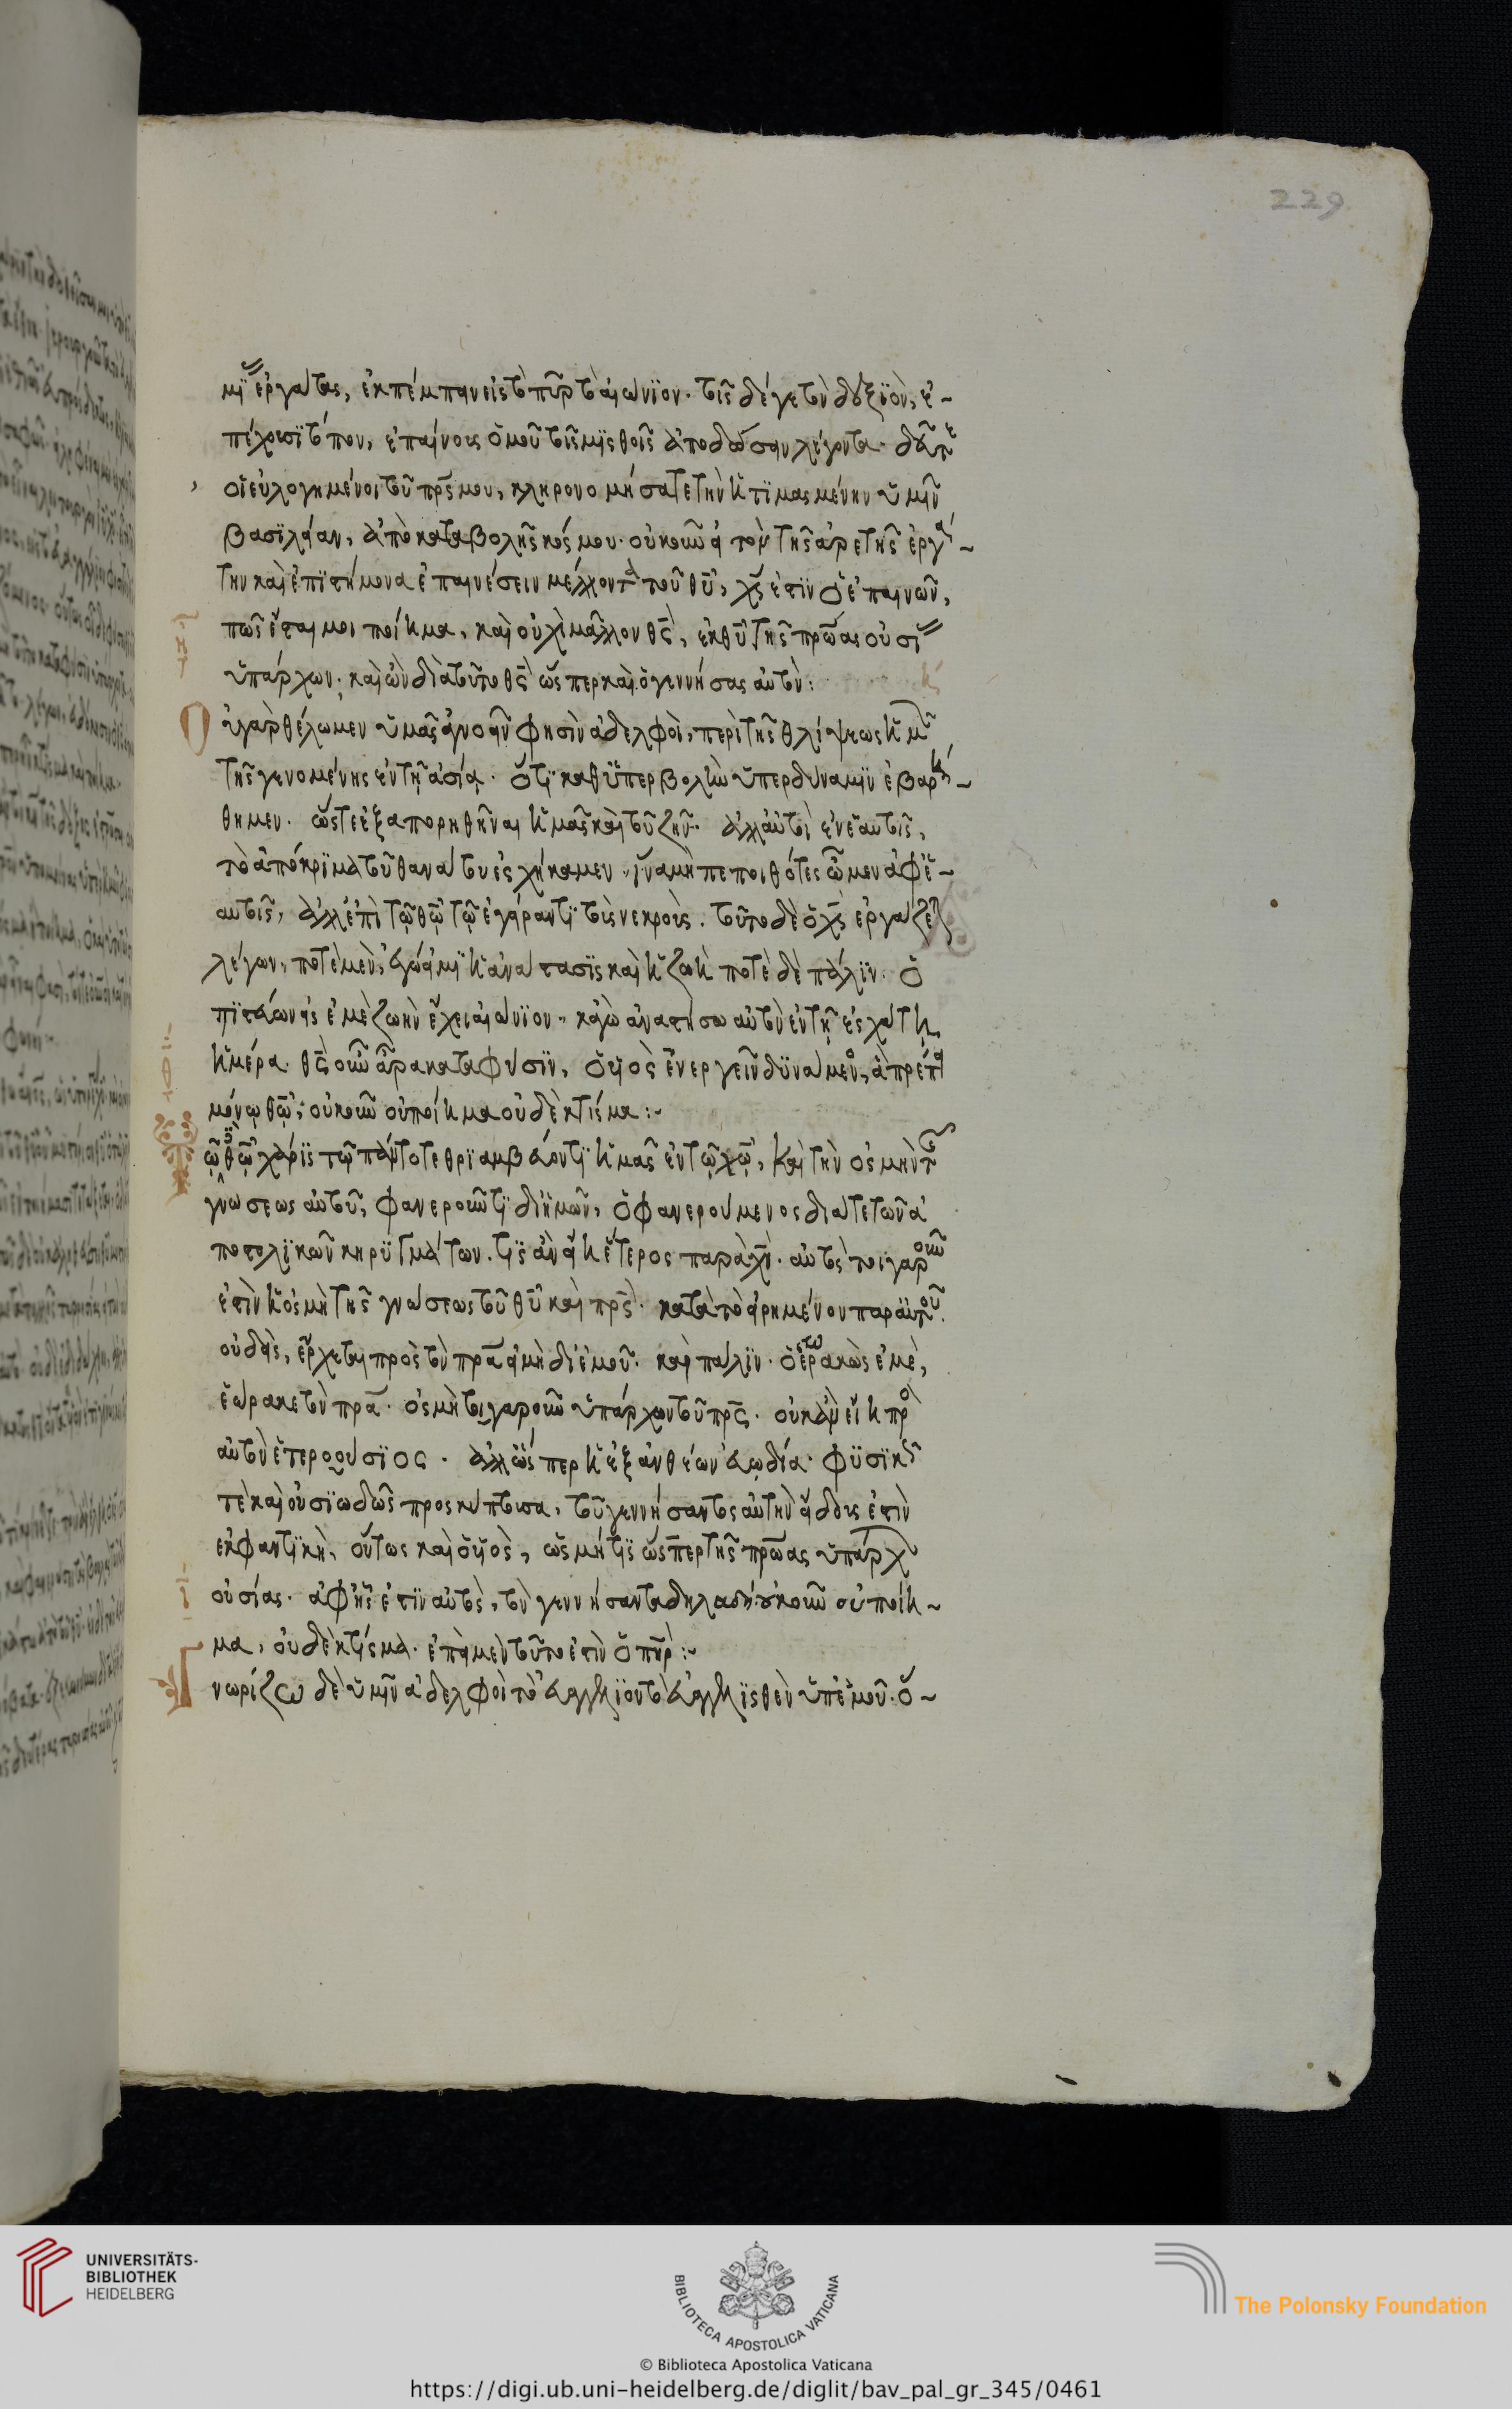 229
μίας ἐργάτας, ἐκπέμπων εἰς τὸ πῦρ τὸ αἰώνιον. τοῖς δέ γε τὸν δεξιὸν, ἐ-
πέχουσι τόπον, ἐπαίνους ὁμοῦ τοῖς μισθοῖς ἀποδώσων λέγοντα. δεῦτε
οἱ εὐλογημένοι τοῦ πρς μου, κληρονομήσατε τὴν ἡτοιμασμένην ὑμῖν
βασιλείαν, ἀπὸ καταβολῆς κόσμου. οὐκοῦν εἰ τὸν τῆς ἀρετῆς ἐργά-
την καὶ ἐπιστήμονα ἐπαινέσειν μέλλοντα τοῦ θυ, χς ἐστιν ὁ ἐπαινῶν,
πῶς ἔσται μοι ποίημα, καὶ οὐχὶ μᾶλλον θς, ἐκ θυ τῆς πρώτας οὐσίας
ὑπάρχων. καὶ ὢν διὰ τοῦτο θς ὥσπερ καὶ ὁ γεννήσας αὐτόν:
Οὐ γὰρ θέλωμεν ὑμᾶς ἀγνοεῖν φησὶν ἀδελφοὶ, περὶ τῆς θλίψεως ἡμῶν
τῆς γενομένης ἐν τῇ ἀσία. ὅτι καθ ὑπερβολὴν ὑπερ δύναμιν ἐβαρή-
θημεν. ὥστε ἐξαπορηθῆναι ἡμᾶς καὶ τοῦ ζῆν. ἀλλ αὐτοὶ ἐν ἑαυτοῖς,
τὸ ἀπόκριμα τοῦ θανάτου ἐσχήκαμεν, ἵνα μὴ πεποιθότες ὦμεν ἀφ ἑ-
αυτοῖς, ἀλλ ἐπὶ τῷ θῷ τῷ ἐγείραντι τοὺς νεκρούς. τοῦτο δὲ ὁ χς ἐργάζεται
λέγων, ποτὲ μὲν, ἐγώ εἰμι ἡ ἀνάστασις καὶ ἡ ζωή ποτὲ δὲ πάλιν. ὁ
πιστεύων εἰς ἐμὲ ζωὴν ἔχει αἰώνιον, κἀγὼ ἀναστήσω αὐτὸν ἐν τῇ ἐσχάτῃ
ἡμέρα. θς οὖν ἄρα κατὰ φύσιν, ὁ υἱὸς ἐνεργεῖν δυνάμενος, ἃ πρέπει
μόνῳ θῷ, οὐκοῦν οὐ ποίημα οὐδὲ κτίσμα:
ῷ δὲ θῷ χάρις τῷ πάντοτε θριαμβεύοντι ἡμᾶς ἐν τῷ χῷ, καὶ τὴν ὀσμὴν τῆς
γνώσεως αὐτοῦ, φανεροῦντι δι ἡμῶν, ὁ φανερούμενος διά τε τῶν ἀ
ποστολικῶν κηρυγμάτων. τίς ἂν εἴη ἕτερος παρὰ χν. αὐτὸς τοιγαροῦν
ἐστὶν ἡ ὀσμὴ τῆς γνώσεως τοῦ θυ καὶ πρς. κατὰ τὸ εἰρημένον παρ αὐτοῦ.
οὐδεὶς, ἔρχεται πρὸς τὸν πρα εἰ μὴ δι ἐμοῦ. καὶ πάλιν. ὁ ἑωρακὼς ἐμὲ,
ἑώρακε τὸν πρα. ὀσμὴ τοιγαροῦν ὑπάρχων τοῦ πρς. οὐκ ἂν εἴη πρὸς
αὐτὸν ἑτεροούσιος. ἀλλ ὥσπερ ἡ ἐξ ἀνθέων εὐωδία. φυσικῶς
τὲ καὶ οὐσιωδῶς προσκύπτουσα, τοῦ γεννήσαντος αὐτὴν εἴδους ἐστὶν
ἐκφαντικὴ, οὕτως καὶ ὁ υἱὸς, ὡς μή τις ὥσπερ τῆς πρώτας ὑπάρχων
οὐσίας. ἀφ ἧς ἐστιν αὐτὸς, τὸν γεννήσαντα δηλαδή. οὐκοῦν οὐ ποίη-
μα, οὐδὲ κτίσμα. ἐπεὶ μὲν τοῦτο ἐστὶν ὁ πηρ:
νωρίζω δὲ ὑμῖν ἀδελφοὶ τὸ εὐαγγέλιον τὸ εὐαγγελισθὲν ὑπ ἐμοῦ. ὁ-
UNIVERSITÄTS-
BIBLIOTHEK
HEIDELBERG
BIBLIOTECA APOSTOLICA VATICANA
The Polonsky Foundation
© Biblioteca Apostolica Vaticana
https://digi.ub.uni-heidelberg.de/diglit/bav_pal_gr_345/0461